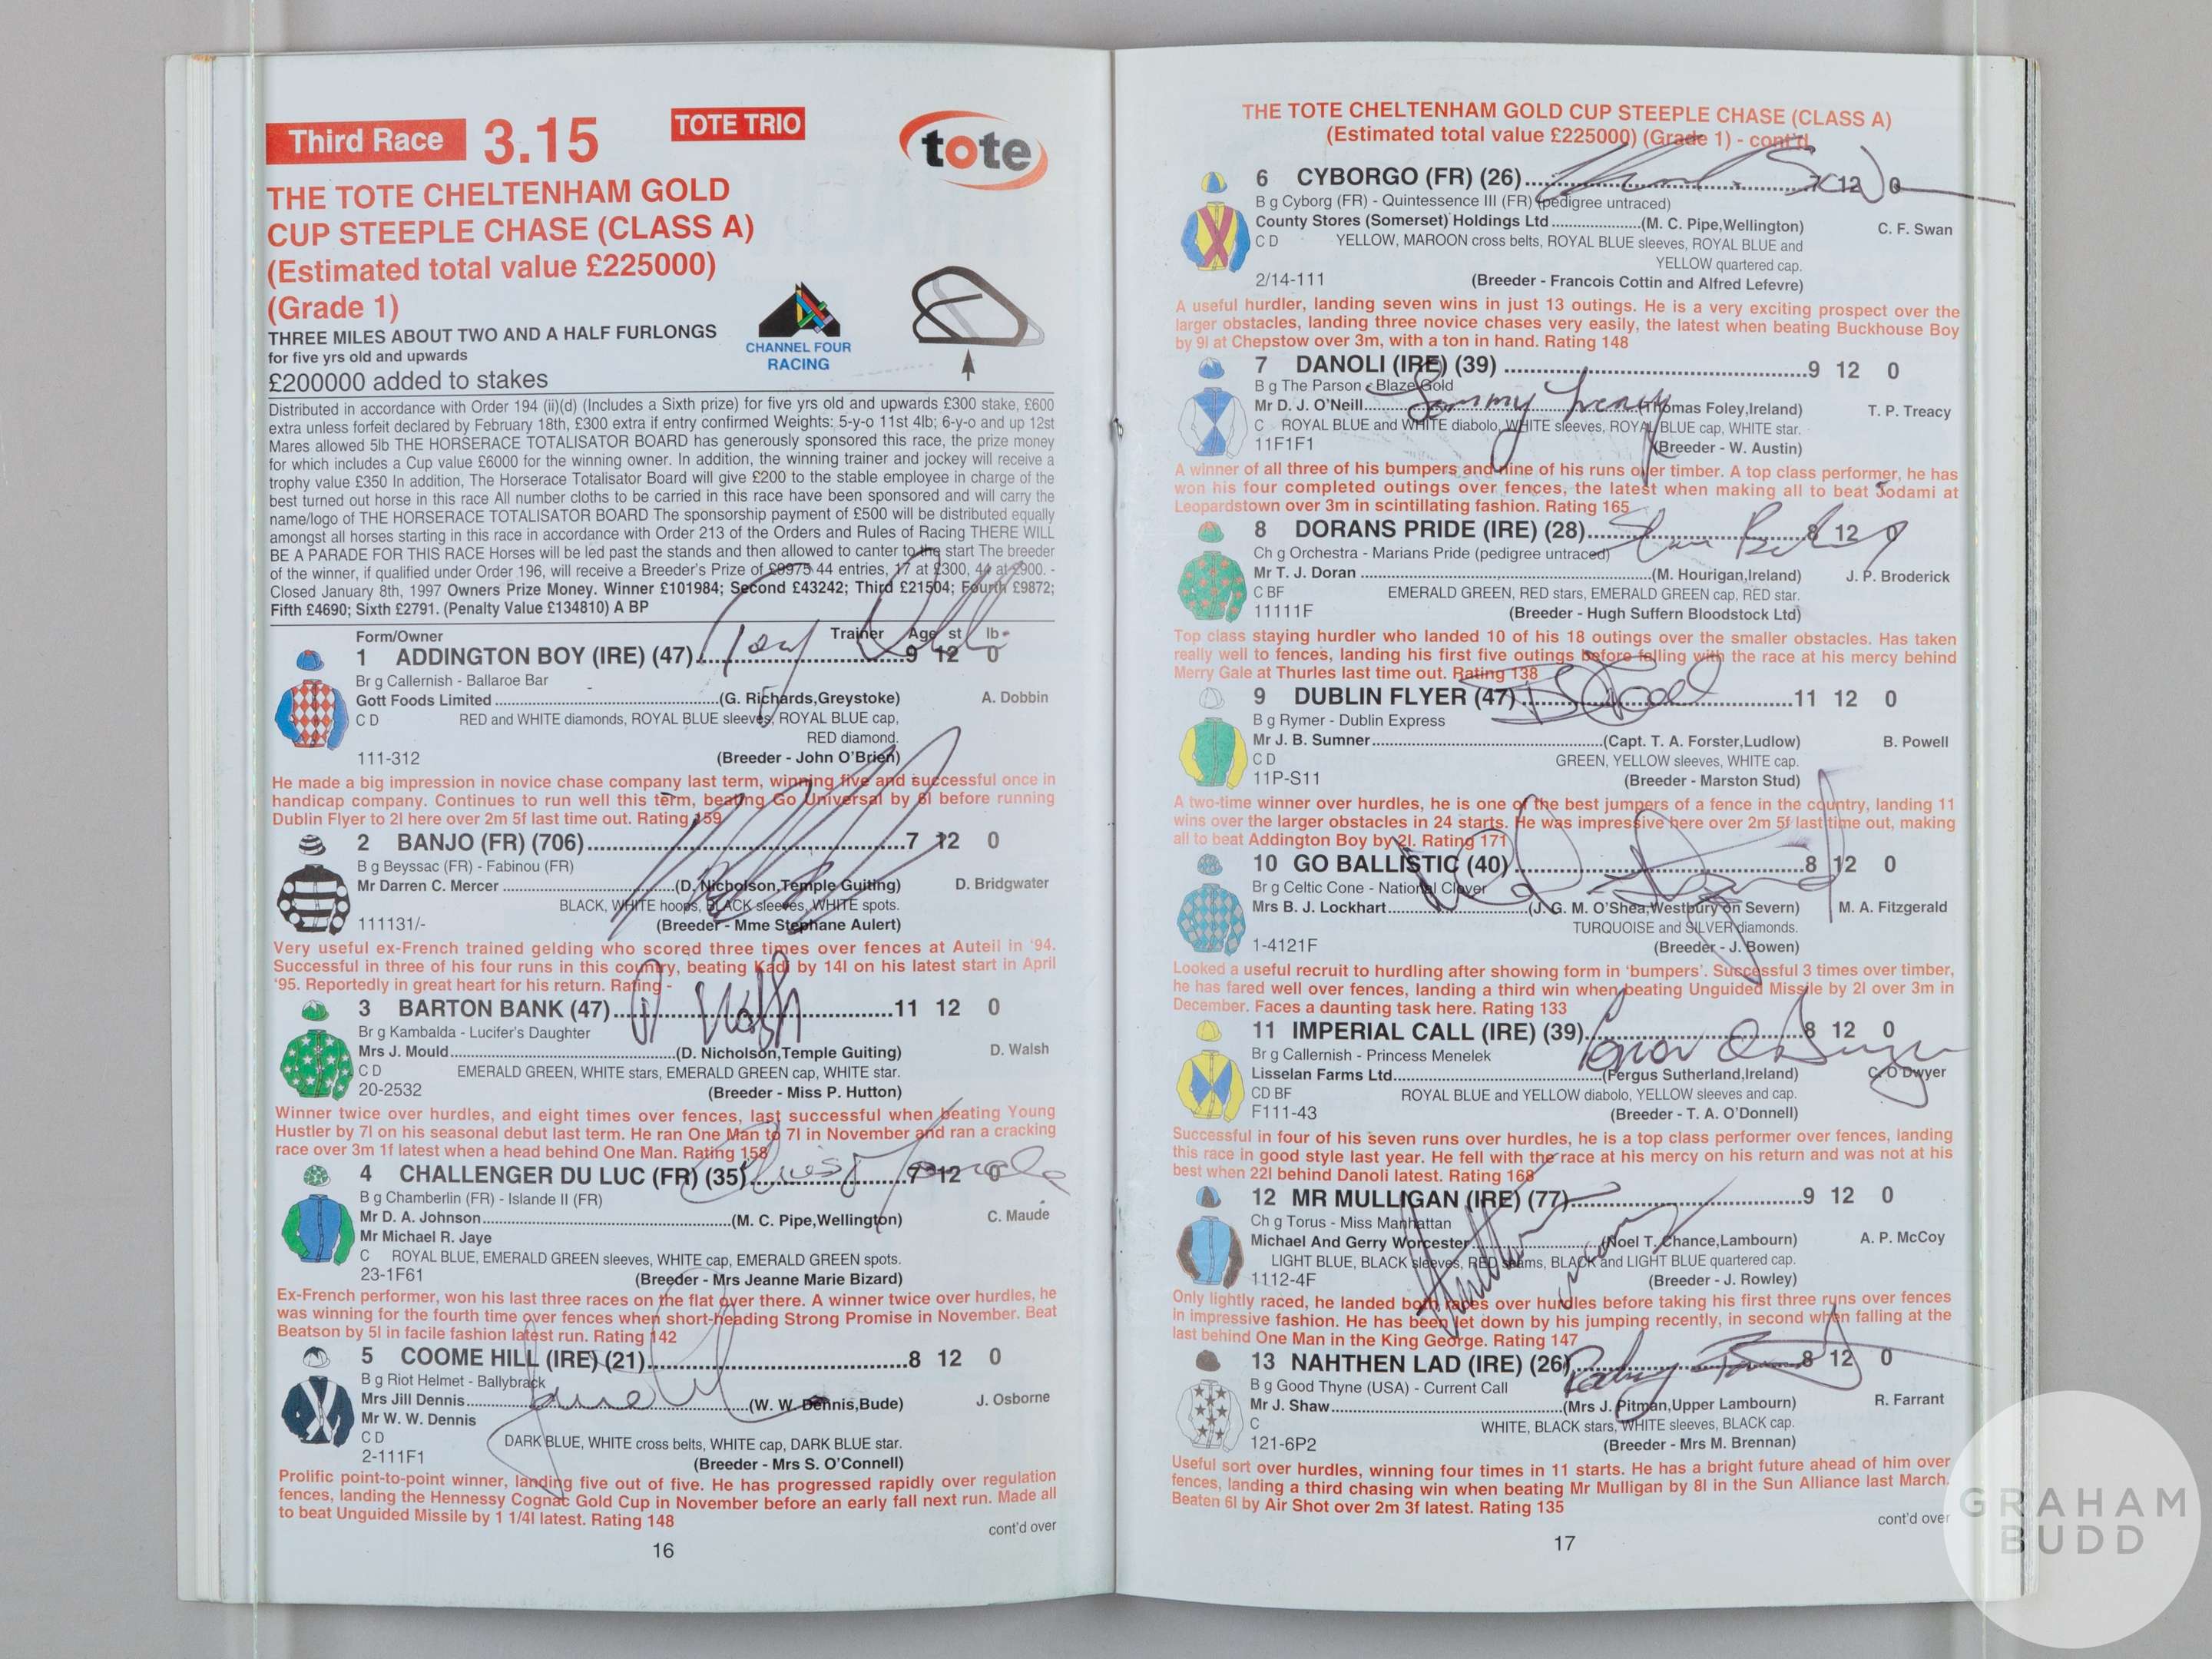 Third Race 3.15 TOTE TRIO tote
THE TOTE CHELTENHAM GOLD
CUP STEEPLE CHASE (CLASS A)
(Estimated total value £225000)
(Grade 1)
THREE MILES ABOUT TWO AND A HALF FURLONGS
for five yrs old and upwards
£200000 added to stakes
CHANNEL FOUR
RACING
Distributed in accordance with Order 194 (ii)(d) (Includes a Sixth prize) for five yrs old and upwards £300 stake, £600
extra unless forfeit declared by February 18th, £300 extra if entry confirmed Weights: 5-y-o 11st 4lb; 6-y-o and up 12st
Mares allowed 5lb THE HORSERACE TOTALISATOR BOARD has generously sponsored this race, the prize money
for which includes a Cup value £6000 for the winning owner. In addition, the winning trainer and jockey will receive a
trophy value £350 In addition, The Horserace Totalisator Board will give £200 to the stable employee in charge of the
best turned out horse in this race All number cloths to be carried in this race have been sponsored and will carry the
name/logo of THE HORSERACE TOTALISATOR BOARD The sponsorship payment of £500 will be distributed equally
amongst all horses starting in this race in accordance with Order 213 of the Orders and Rules of Racing THERE WILL
BE A PARADE FOR THIS RACE Horses will be led past the stands and then allowed to canter to the start The breeder
of the winner, if qualified under Order 196, will receive a Breeder's Prize of £9975 44 entries, 17 at £300, 44 at £900. -
Closed January 8th, 1997 Owners Prize Money. Winner £101984; Second £43242; Third £21504; Fourth £9872;
Fifth £4690; Sixth £2791. (Penalty Value £134810) A BP
Form/Owner Trainer Age st lb
1 ADDINGTON BOY (IRE) (47) 9 12 0
Br g Callernish - Ballaroe Bar
Gott Foods Limited (G. Richards,Greystoke) A. Dobbin
C D RED and WHITE diamonds, ROYAL BLUE sleeves, ROYAL BLUE cap,
RED diamond.
111-312 (Breeder - John O'Brien)
He made a big impression in novice chase company last term, winning five and successful once in
handicap company. Continues to run well this term, beating Go Universal by 6l before running
Dublin Flyer to 2l here over 2m 5f last time out. Rating 159
2 BANJO (FR) (706) 7 12 0
B g Beyssac (FR) - Fabinou (FR)
Mr Darren C. Mercer (D. Nicholson,Temple Guiting) D. Bridgwater
BLACK, WHITE hoops, BLACK sleeves, WHITE spots.
111131/- (Breeder - Mme Stephane Aulert)
Very useful ex-French trained gelding who scored three times over fences at Auteil in '94.
Successful in three of his four runs in this country, beating Kadi by 14l on his latest start in April
'95. Reportedly in great heart for his return. Rating -
3 BARTON BANK (47) 11 12 0
D Walsh
Br g Kambalda - Lucifer's Daughter
Mrs J. Mould (D. Nicholson,Temple Guiting) D. Walsh
C D EMERALD GREEN, WHITE stars, EMERALD GREEN cap, WHITE star.
20-2532 (Breeder - Miss P. Hutton)
Winner twice over hurdles, and eight times over fences, last successful when beating Young
Hustler by 7l on his seasonal debut last term. He ran One Man to 7l in November and ran a cracking
race over 3m 1f latest when a head behind One Man. Rating 158
4 CHALLENGER DU LUC (FR) (35) 7 12 0
B g Chamberlin (FR) - Islande II (FR)
Mr D. A. Johnson (M. C. Pipe,Wellington) C. Maude
Mr Michael R. Jaye
C ROYAL BLUE, EMERALD GREEN sleeves, WHITE cap, EMERALD GREEN spots.
23-1F61 (Breeder - Mrs Jeanne Marie Bizard)
Ex-French performer, won his last three races on the flat over there. A winner twice over hurdles, he
was winning for the fourth time over fences when short-heading Strong Promise in November. Beat
Beatson by 5l in facile fashion latest run. Rating 142
5 COOME HILL (IRE) (21) 8 12 0
B g Riot Helmet - Ballybrack
Mrs Jill Dennis (W. W. Dennis,Bude) J. Osborne
Mr W. W. Dennis
C D DARK BLUE, WHITE cross belts, WHITE cap, DARK BLUE star.
2-111F1 (Breeder - Mrs S. O'Connell)
Prolific point-to-point winner, landing five out of five. He has progressed rapidly over regulation
fences, landing the Hennessy Cognac Gold Cup in November before an early fall next run. Made all
to beat Unguided Missile by 1 1/4l latest. Rating 148
cont'd over
16
THE TOTE CHELTENHAM GOLD CUP STEEPLE CHASE (CLASS A)
(Estimated total value £225000) (Grade 1) - cont'd
6 CYBORGO (FR) (26) 7 12 0
B g Cyborg (FR) - Quintessence III (FR) (pedigree untraced)
County Stores (Somerset) Holdings Ltd (M. C. Pipe,Wellington) C. F. Swan
C D YELLOW, MAROON cross belts, ROYAL BLUE sleeves, ROYAL BLUE and
YELLOW quartered cap.
2/14-111 (Breeder - Francois Cottin and Alfred Lefevre)
A useful hurdler, landing seven wins in just 13 outings. He is a very exciting prospect over the
larger obstacles, landing three novice chases very easily, the latest when beating Buckhouse Boy
by 9l at Chepstow over 3m, with a ton in hand. Rating 148
7 DANOLI (IRE) (39) 9 12 0
B g The Parson - Blaze Gold
Tommy Treacy
Mr D. J. O'Neill (Thomas Foley,Ireland) T. P. Treacy
C ROYAL BLUE and WHITE diabolo, WHITE sleeves, ROYAL BLUE cap, WHITE star.
11F1F1 (Breeder - W. Austin)
A winner of all three of his bumpers and nine of his runs over timber. A top class performer, he has
won his four completed outings over fences, the latest when making all to beat Jodami at
Leopardstown over 3m in scintillating fashion. Rating 165
8 DORANS PRIDE (IRE) (28) 8 12 0
Ch g Orchestra - Marians Pride (pedigree untraced)
Mr T. J. Doran (M. Hourigan,Ireland) J. P. Broderick
C BF EMERALD GREEN, RED stars, EMERALD GREEN cap, RED star.
11111F (Breeder - Hugh Suffern Bloodstock Ltd)
Top class staying hurdler who landed 10 of his 18 outings over the smaller obstacles. Has taken
really well to fences, landing his first five outings before falling with the race at his mercy behind
Merry Gale at Thurles last time out. Rating 138
9 DUBLIN FLYER (47) 11 12 0
B g Rymer - Dublin Express
Mr J. B. Sumner (Capt. T. A. Forster,Ludlow) B. Powell
C D GREEN, YELLOW sleeves, WHITE cap.
11P-S11 (Breeder - Marston Stud)
A two-time winner over hurdles, he is one of the best jumpers of a fence in the country, landing 11
wins over the larger obstacles in 24 starts. He was impressive here over 2m 5f last time out, making
all to beat Addington Boy by 2l. Rating 171
10 GO BALLISTIC (40) 8 12 0
Br g Celtic Cone - National Clover
Mrs B. J. Lockhart (J. G. M. O'Shea,Westbury on Severn) M. A. Fitzgerald
TURQUOISE and SILVER diamonds.
1-4121F (Breeder - J. Bowen)
Looked a useful recruit to hurdling after showing form in 'bumpers'. Successful 3 times over timber,
he has fared well over fences, landing a third win when beating Unguided Missile by 2l over 3m in
December. Faces a daunting task here. Rating 133
11 IMPERIAL CALL (IRE) (39) 8 12 0
Conor O Dwyer
Br g Callernish - Princess Menelek
Lisselan Farms Ltd (Fergus Sutherland,Ireland) C. O'Dwyer
CD BF ROYAL BLUE and YELLOW diabolo, YELLOW sleeves and cap.
F111-43 (Breeder - T. A. O'Donnell)
Successful in four of his seven runs over hurdles, he is a top class performer over fences, landing
this race in good style last year. He fell with the race at his mercy on his return and was not at his
best when 22l behind Danoli latest. Rating 168
12 MR MULLIGAN (IRE) (77) 9 12 0
Ch g Torus - Miss Manhattan
Michael And Gerry Worcester (Noel T. Chance,Lambourn) A. P. McCoy
LIGHT BLUE, BLACK sleeves, RED seams, BLACK and LIGHT BLUE quartered cap.
1112-4F (Breeder - J. Rowley)
Only lightly raced, he landed both races over hurdles before taking his first three runs over fences
in impressive fashion. He has been let down by his jumping recently, in second when falling at the
last behind One Man in the King George. Rating 147
13 NAHTHEN LAD (IRE) (26) 8 12 0
B g Good Thyne (USA) - Current Call
Mr J. Shaw (Mrs J. Pitman,Upper Lambourn) R. Farrant
C WHITE, BLACK stars, WHITE sleeves, BLACK cap.
121-6P2 (Breeder - Mrs M. Brennan)
Useful sort over hurdles, winning four times in 11 starts. He has a bright future ahead of him over
fences, landing a third chasing win when beating Mr Mulligan by 8l in the Sun Alliance last March.
Beaten 6l by Air Shot over 2m 3f latest. Rating 135
cont'd over
17
GRAHAM
BUDD